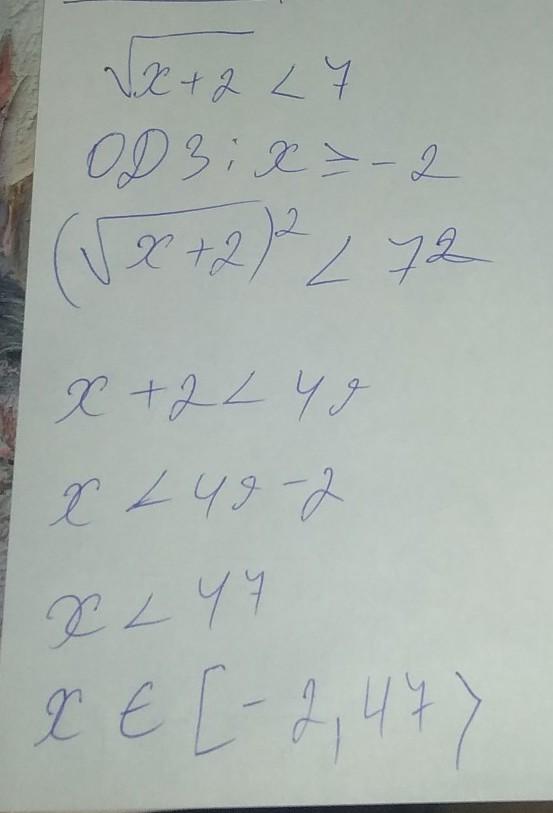 √(x+2) < 7
ОДЗ: x ≥ -2
(√(x+2))² < 7²
x + 2 < 49
x < 49 - 2
x < 47
x ∈ [-2, 47⟩